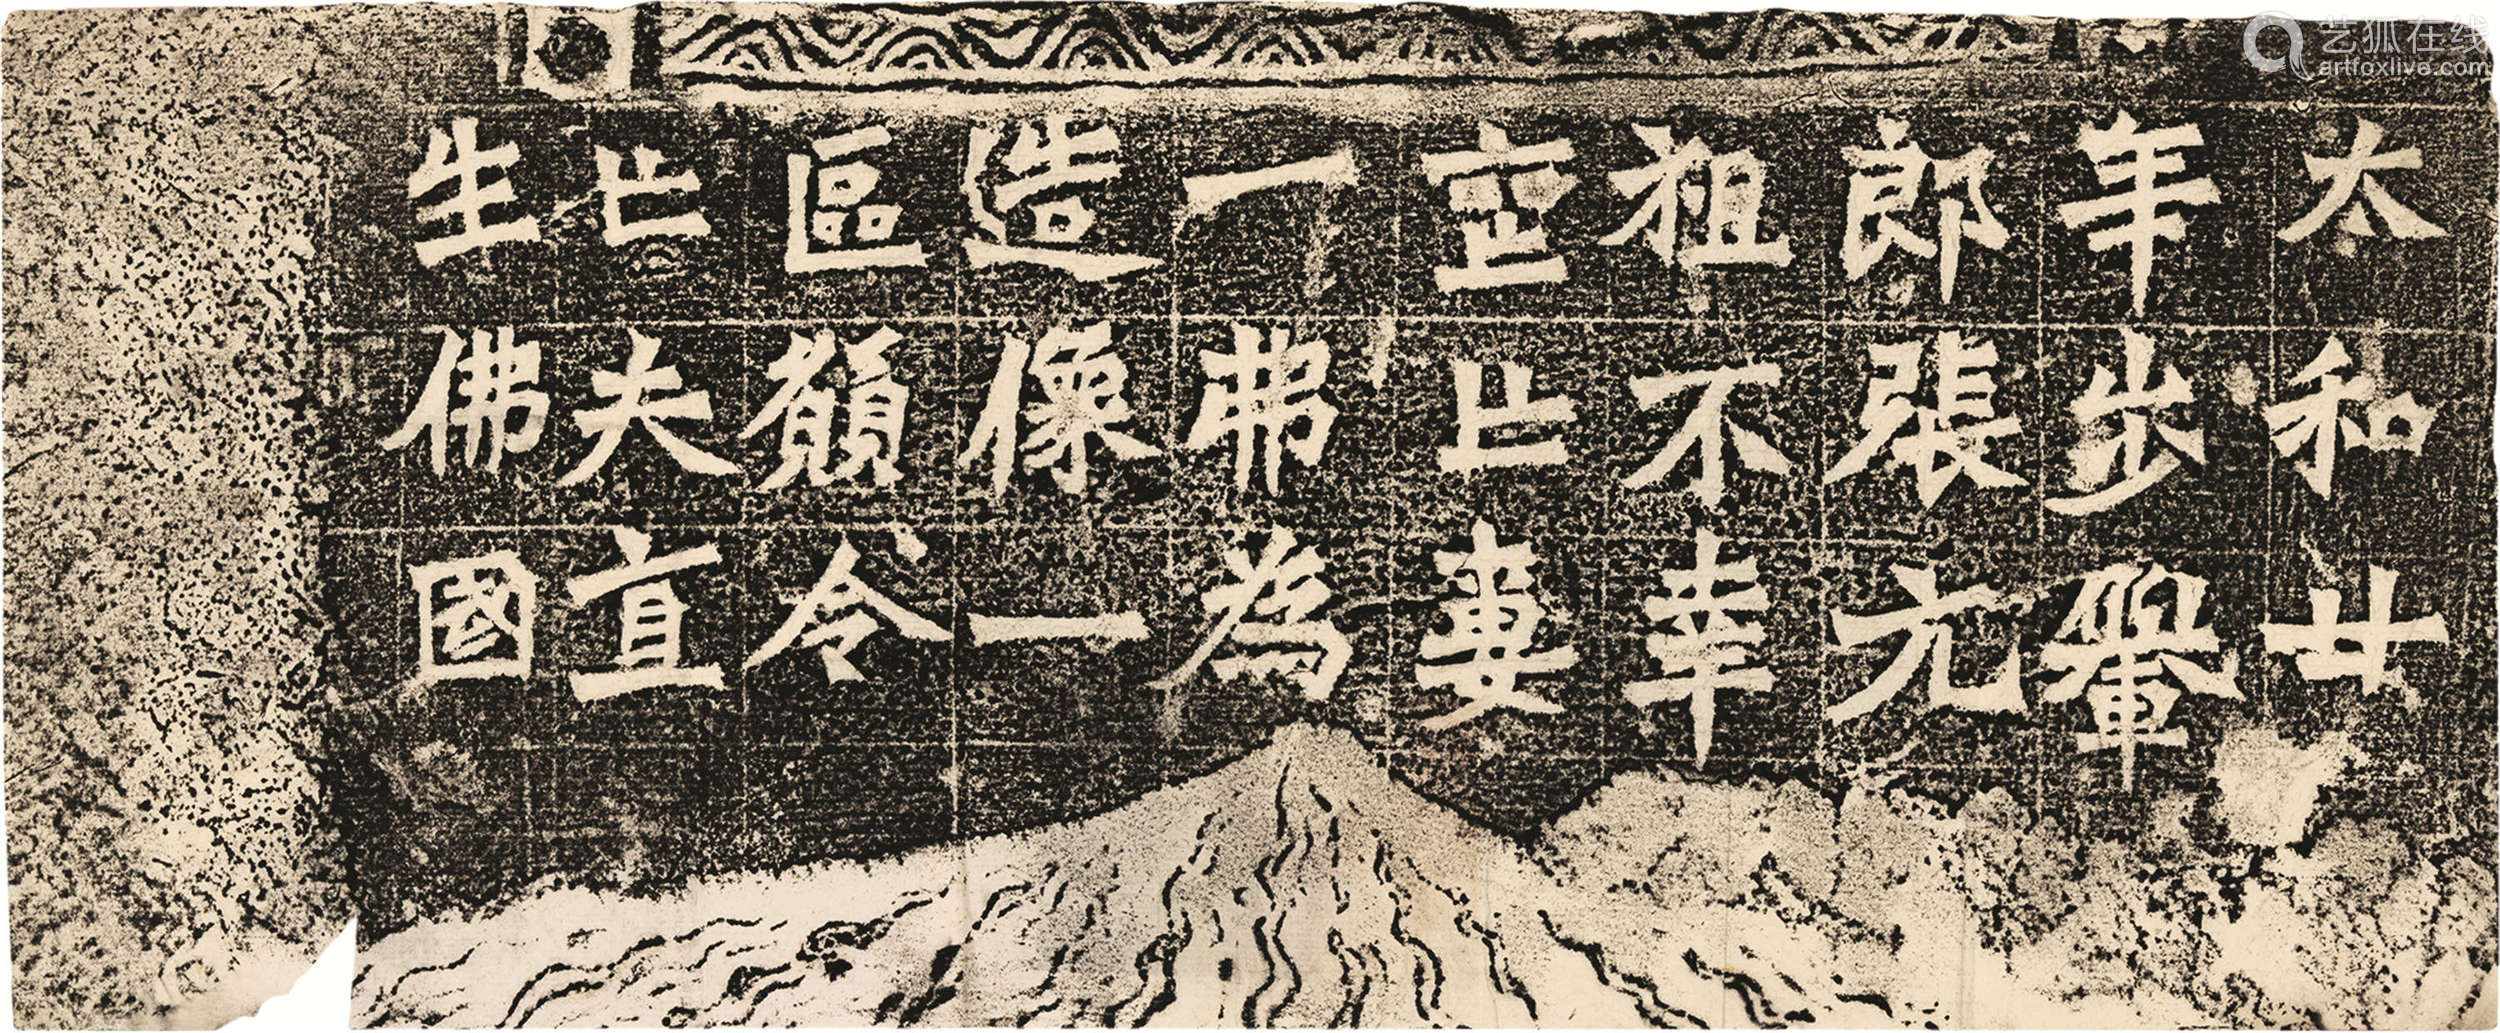 太和廿
年步轝
郎張元
祖不幸
喪亡妻
一弗為
造像一
區願令
亡夫直
生佛國
艺狐在线
artfoxlive.com